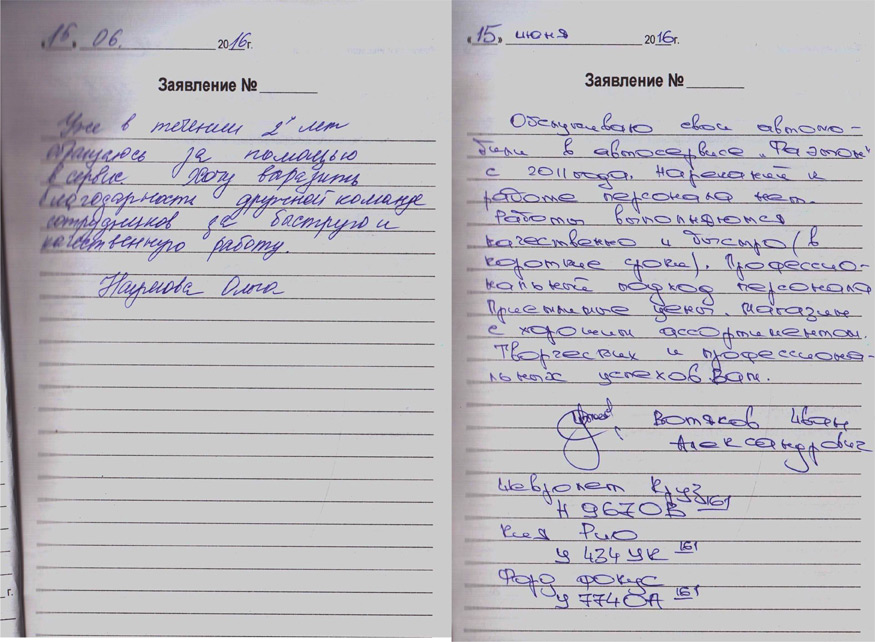 "16" 06. 2016г.
Заявление №
Уже в течении 2х лет
обращаюсь за помощью
в сервис. Хочу выразить
благодарности дружной команде
сотрудников за быструю и
качественную работу.
Наумова Ольга
"15" июня 2016г.
Заявление №
Обслуживаю свои автомо-
били в автосервисе „Фаэтон"
с 2011 года. Нареканий к
работе персонала нет.
Работы выполняются
качественно и быстро (в
короткие сроки). Профессио-
нальный подход персонала
Приемлимые цены. Магазин
с хорошим ассортиментом.
Творческих и профессиона-
льных успехов Вам.
Вотяков Иван
Александрович
Шевролет Круз
Н 967 ОВ 161
Киа Рио
У 434 УК 161
Форд фокус
У 774 ОА 161
г.